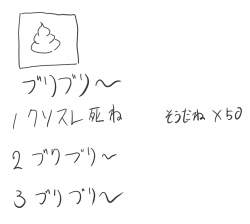 ブリブリ～
1 クソスレ死ね そうだね×50
2 ブリブリ～
3 ブリブリ～